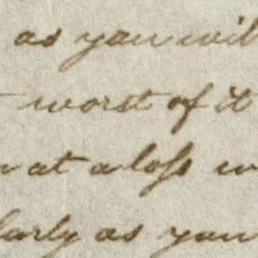 as you will
worst of it
at a loſs
larly as you